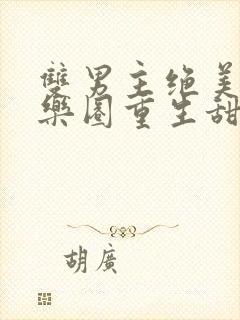 雙男主绝美
樂園重生甜
胡廣